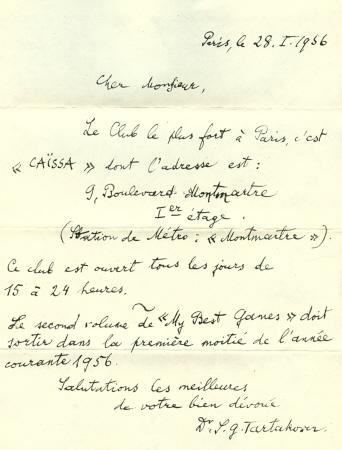 Paris, le 28.I.1956
Cher Monsieur,
Le Club le plus fort à Paris, c'est
« CAÏSSA » dont l'adresse est :
9, Boulevard Montmartre
Ier étage.
(Station de Métro : « Montmartre »).
Ce club est ouvert tous les jours de
15 à 24 heures.
Le second volume de « My Best Games » doit
sortir dans la première moitié de l'année
courante 1956.
Salutations les meilleures
de votre bien dévoué
Dr. S. G. Tartakover.